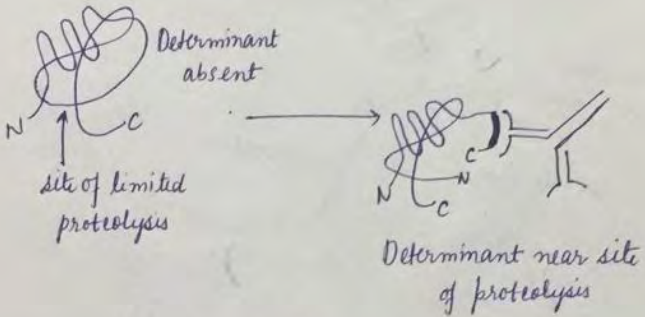 Determinant
absent
N
C
site of limited
proteolysis
C
N
N
C
Determinant near site
of proteolysis